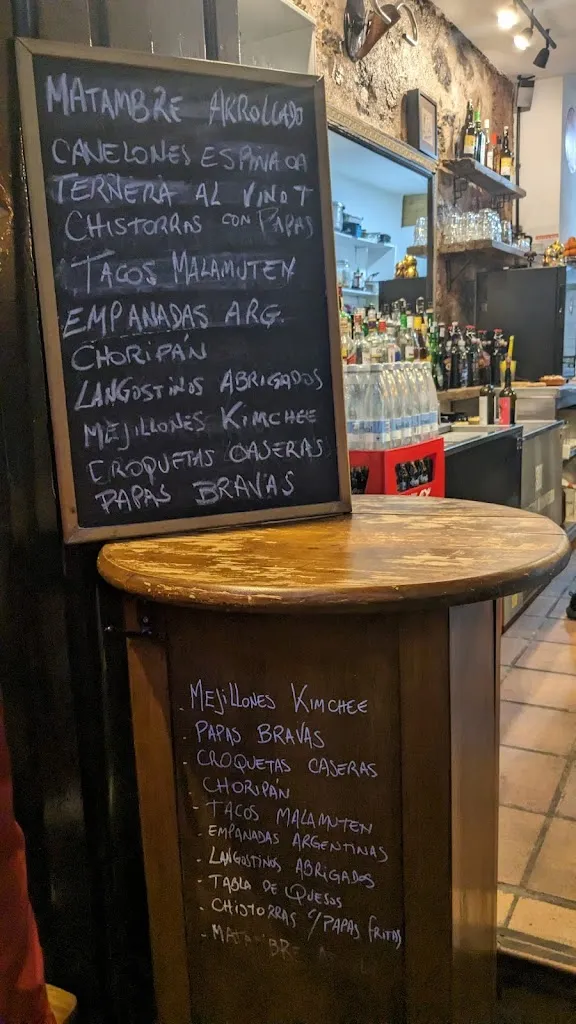 MATAMBRE ARROLLADO
CANELONES ESPINACA
TERNERA AL VINO T
CHISTORRAS CON PAPAS
TACOS MALAMUTEN
EMPANADAS ARG.
CHORIPÁN
LANGOSTINOS ABRIGADOS
MEJILLONES KIMCHEE
CROQUETAS CASERAS
PAPAS BRAVAS
. MEJILLONES KIMCHEE
. PAPAS BRAVAS
- CROQUETAS CASERAS
. CHORIPÁN
- TACOS MALAMUTEN
- EMPANADAS ARGENTINAS
- LANGOSTINOS ABRIGADOS
- TABLA DE QUESOS
- CHISTORRAS C/PAPAS FRITAS
- MATAMBRE